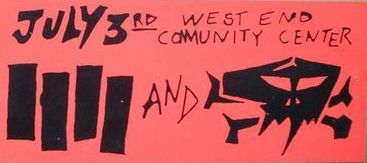 JULY 3RD WEST END
COMUNITY CENTER
AND